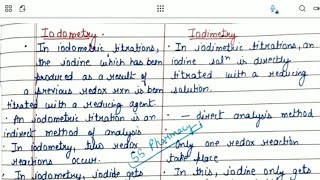 Iodometry.
• In iodometric titrations,
the iodine which has been
produced as a result of
a previous redox rxn is been
titrated with a reducing agent.
• An iodometric titration is an
indirect method of analysis
• In iodometry, two redox
reactions occur.
• In iodometry, iodide gets
Iodimetry.
• In iodimetric titrations, an
iodine solⁿ is directly
titrated with a reducing
solution.
• — direct analysis method
• only one redox reaction
take place
• In this, iodine only gets
SS Pharmacy